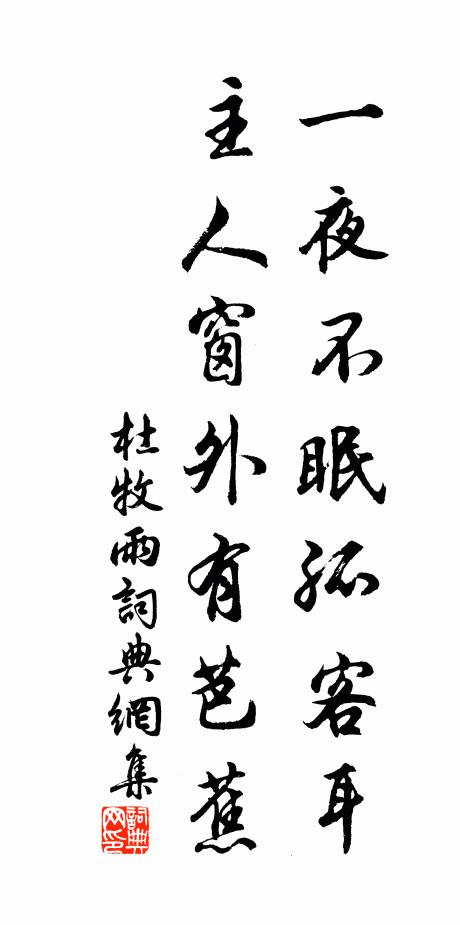 一夜不眠孤客耳
主人窗外有芭蕉
杜牧雨詞典網集
詞典网印